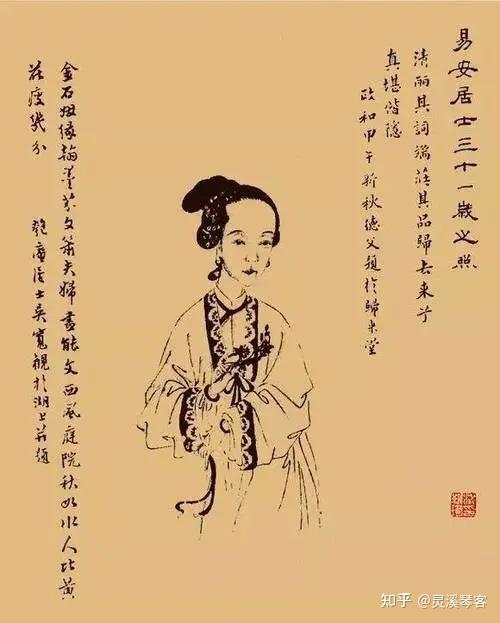 易安居士三十一歲之照
清丽其詞端莊其品歸去来兮
真堪偕隱
政和甲午新秋德父題於歸来堂
金石姻緣翰墨芬文簫夫婦盡能文西風庭院秋如水人比黃
花瘦幾分
匏庵居士吴寬觀於湖上并題
知乎 @灵溪琴客